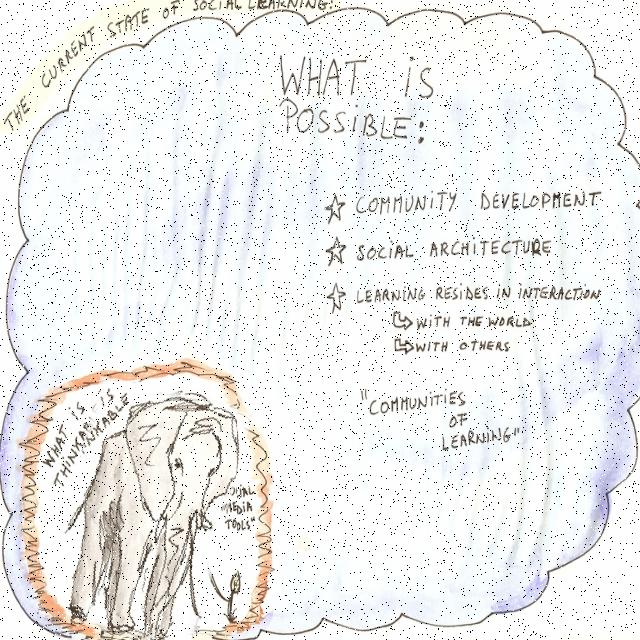 THE CURRENT STATE OF SOCIAL LEARNING:
WHAT iS
POSSiBLE:
COMMUNITY DEVELOPMENT
SOCIAL ARCHITECTURE
LEARNING RESIDES IN INTERACTION
WITH THE WORLD
WITH OTHERS
"COMMUNITIES
OF
LEARNING"
WHAT IS IS
MEDIA
TOOLS"